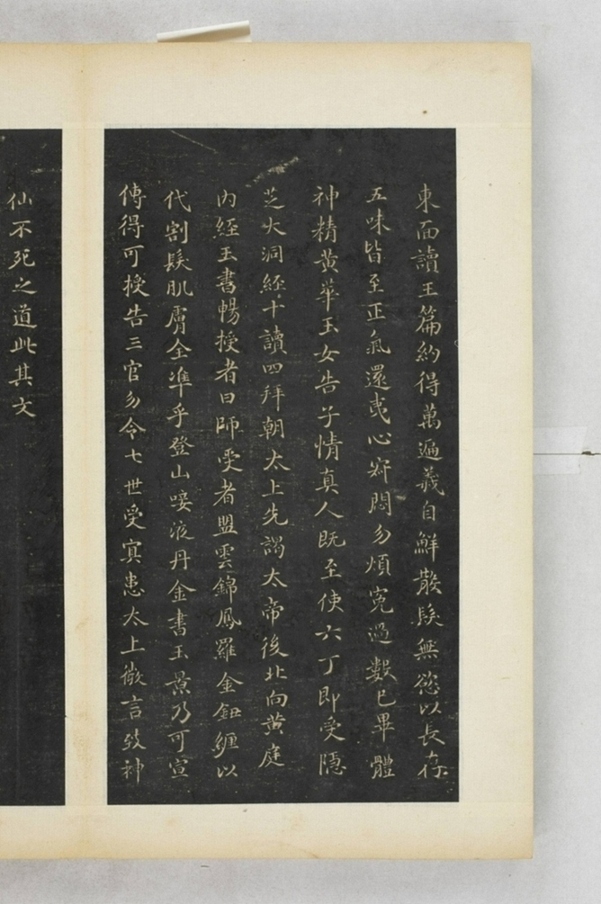 東面讀玉篇約得萬遍義自鮮散髮無慾以長存
五味皆至正氣還夷心寂悶勿煩冤過數已畢體
神精黃華玉女告子情真人既至使六丁即受隱
芝大洞經十讀四拜朝太上先謁太帝後北向黃庭
內經玉書暢授者曰師受者盟雲錦鳳羅金鈕纏以
代割髮肌膚全准乎登山唼液丹金書玉景乃可宣
傳得可授告三官勿令七世受冥患太上微言致神
仙不死之道此其文